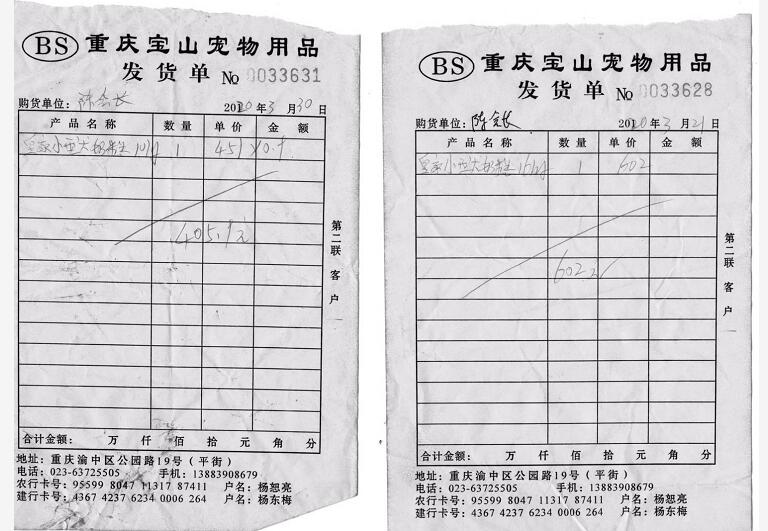 BS 重庆宝山宠物用品
发货单 No 0033631
购货单位: 陈会长 2020年3月30日
产品名称 数量 单价 金额
皇家小型犬 10kg 1 451×0.9
405.9元
第二联 客户
合计金额: 万 仟 佰 拾 元 角 分
地址: 重庆渝中区公园路19号 (平街)
电话: 023-63725505 手机: 13883908679
农行卡号: 95599 8047 11317 87411 户名: 杨恕亮
建行卡号: 4367 4237 6234 0006 264 户名: 杨东梅
BS 重庆宝山宠物用品
发货单 No 0033628
购货单位: 陈会长 2020年3月21日
产品名称 数量 单价 金额
皇家小型犬 1 602
602元
第二联 客户
合计金额: 万 仟 佰 拾 元 角 分
地址: 重庆渝中区公园路19号 (平街)
电话: 023-63725505 手机: 13883908679
农行卡号: 95599 8047 11317 87411 户名: 杨恕亮
建行卡号: 4367 4237 6234 0006 264 户名: 杨东梅